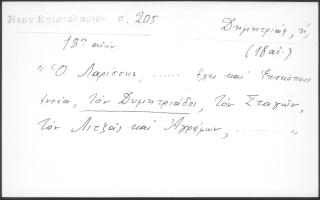 Νέον Επιστολάριον σ. 205
Δημητριάς, ἡ,
18ος αἰών.
(18 αἰ.)
"Ὁ Λαρίσσης, ...... ἔχει καὶ Ἐπισκόπους
ἐννέα, τὸν Δημητριάδος, τὸν Σταγῶν,
τὸν Λιτζᾶς καὶ Ἀγράφων, ...... "